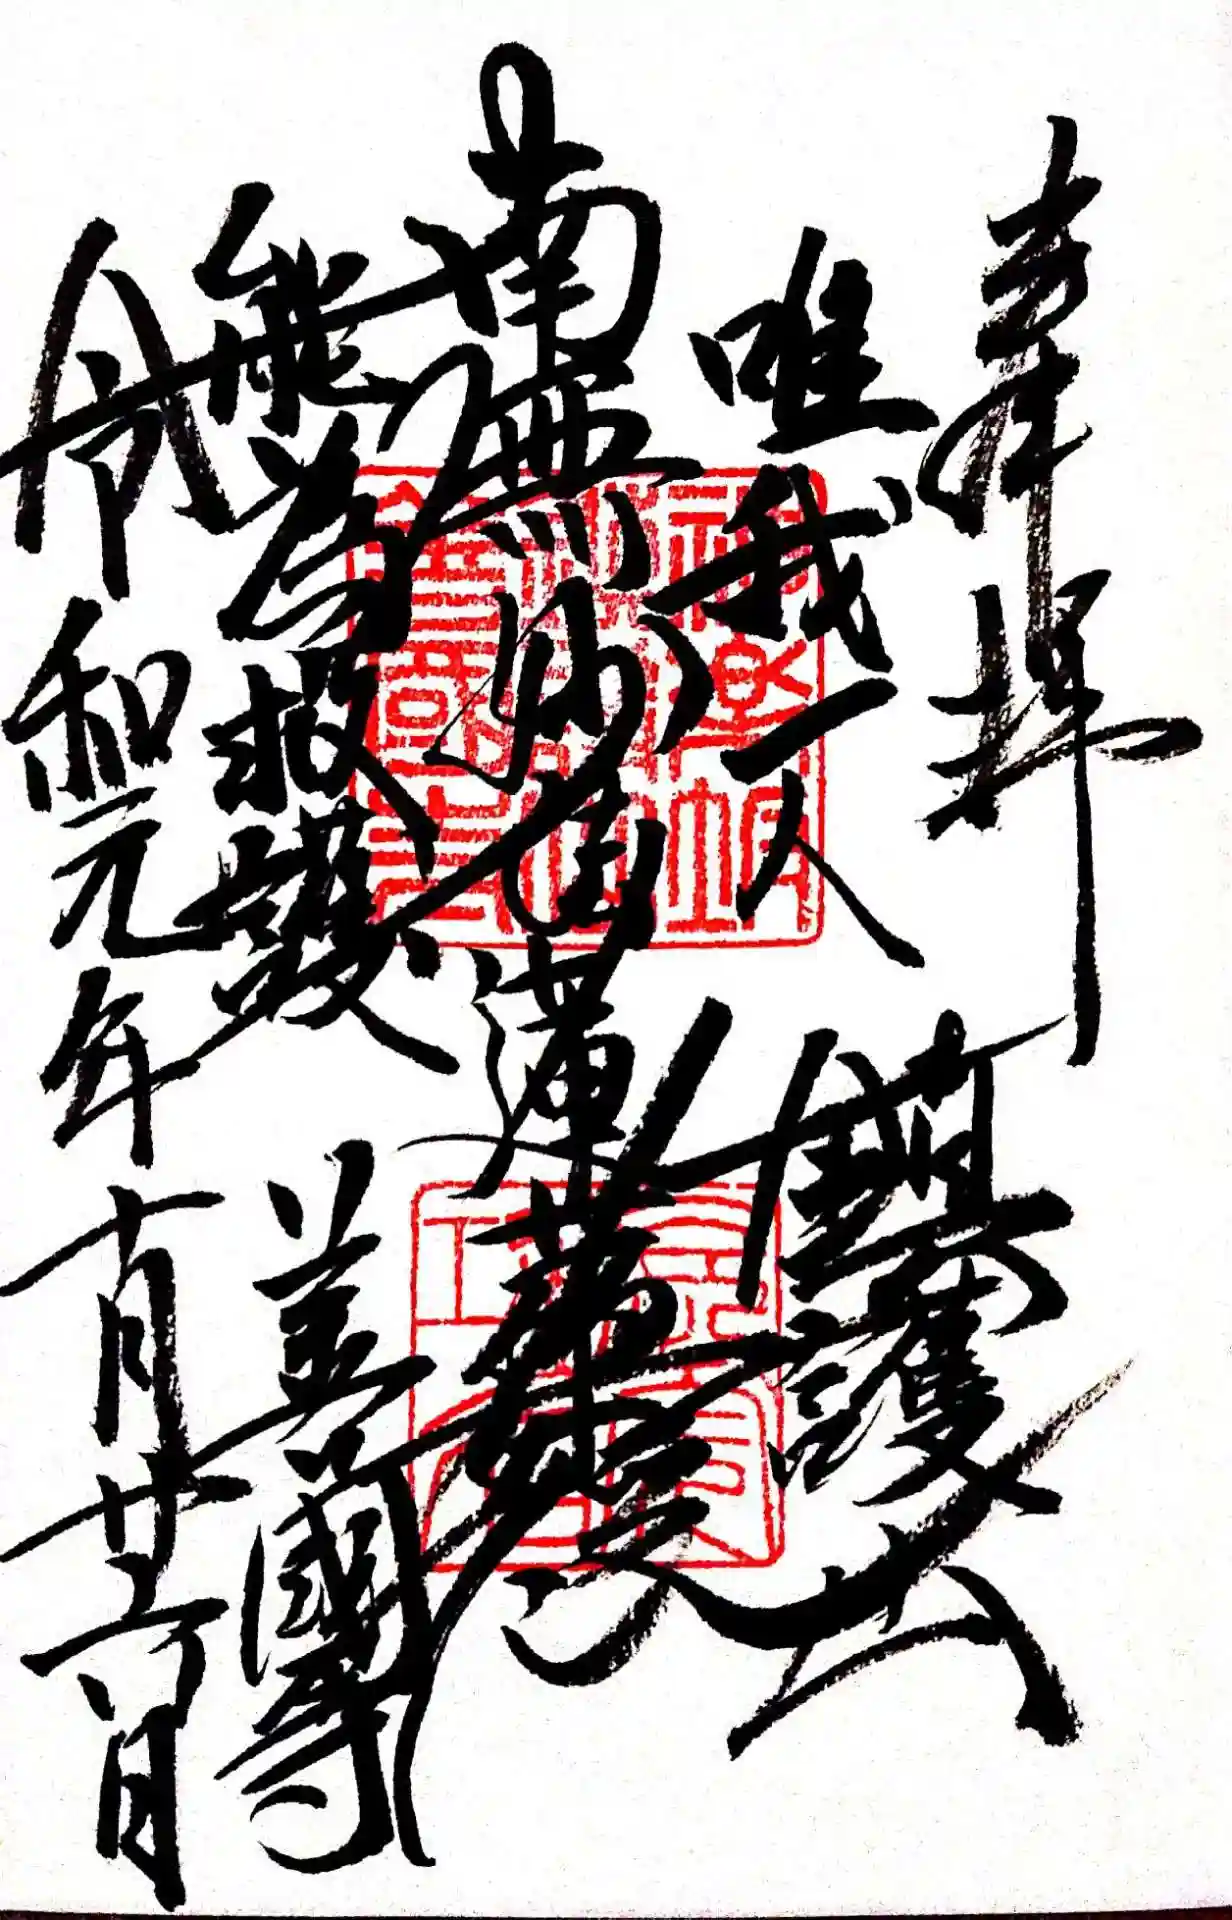 奉拝
唯我一人
鎮護山
南無妙法蓮華経
能為救護
善國寺
令和元年十月廿六日